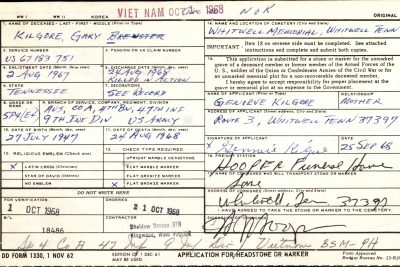 WW I WW II KOREA VIET NAM OCT 1 1968 NOK ORIGINAL
1. NAME OF DECEASED - LAST - FIRST - MIDDLE (Print or Type)
KILGORE, GARY BREWSTER
14. NAME AND LOCATION OF CEMETERY (City and State)
WHITWELL MEMORIAL, WHITWELL TENN
2. SERVICE NUMBER
US 67 183 751
3. PENSION OR VA CLAIM NUMBER
IMPORTANT: Item 18 on reverse side must be completed. See attached
instructions and complete and submit both copies.
4. ENLISTMENT DATE
2 AUG 1967
5. DISCHARGE DATE
24 AUG 1968
KILLED IN ACTION
This application is submitted for a stone or marker for the unmarked
grave of a deceased member or former member of the Armed Forces of the
U.S., soldier of the Union or Confederate Armies of the Civil War or for
an unmarked memorial plot for a non-recoverable deceased member.
I hereby agree to accept responsibility for proper placement at grave or
memorial plot at no expense to the Government.
6. STATE
TENNESSEE
7. DECORATIONS
SEE RECORD
GENIEVE KILGORE
MOTHER
8. GRADE OR RANK
SP4(E4)
9. BRANCH OF SERVICE, COMPANY, REGIMENT, DIVISION
AUS, CO A, 4TH BN, 47TH INF
9TH INF DIV US ARMY
ROUTE 3, WHITWELL TENN 37397
10. DATE OF BIRTH
27 JULY 1947
11. DATE OF DEATH
24 AUG 1968
SIGNATURE OF APPLICANT
DATE
25 SEP 68
12. RELIGIOUS EMBLEM (Check one)
13. CHECK TYPE REQUIRED
UPRIGHT MARBLE HEADSTONE
X LATIN CROSS (Christian)
FLAT MARBLE MARKER
STAR OF DAVID
FLAT GRANITE MARKER
NO EMBLEM
X FLAT BRONZE MARKER
HOOPER Funeral Home
DO NOT WRITE HERE
Whitwell, Ten 37397
1 OCT 1968
2 OCT 1968
I HAVE AGREED TO TAKE THE STONE OR MARKER TO THE CEMETERY.
B/L
18486
Kingwood, West Virginia
Sp 4 Co A 47 Inf 9 Inf Div Vietnam BSM-PH
DD FORM 1330, 1 NOV 62
EDITION OF 1 DEC 61
MAY BE USED.
APPLICATION FOR HEADSTONE OR MARKER
Form Approved